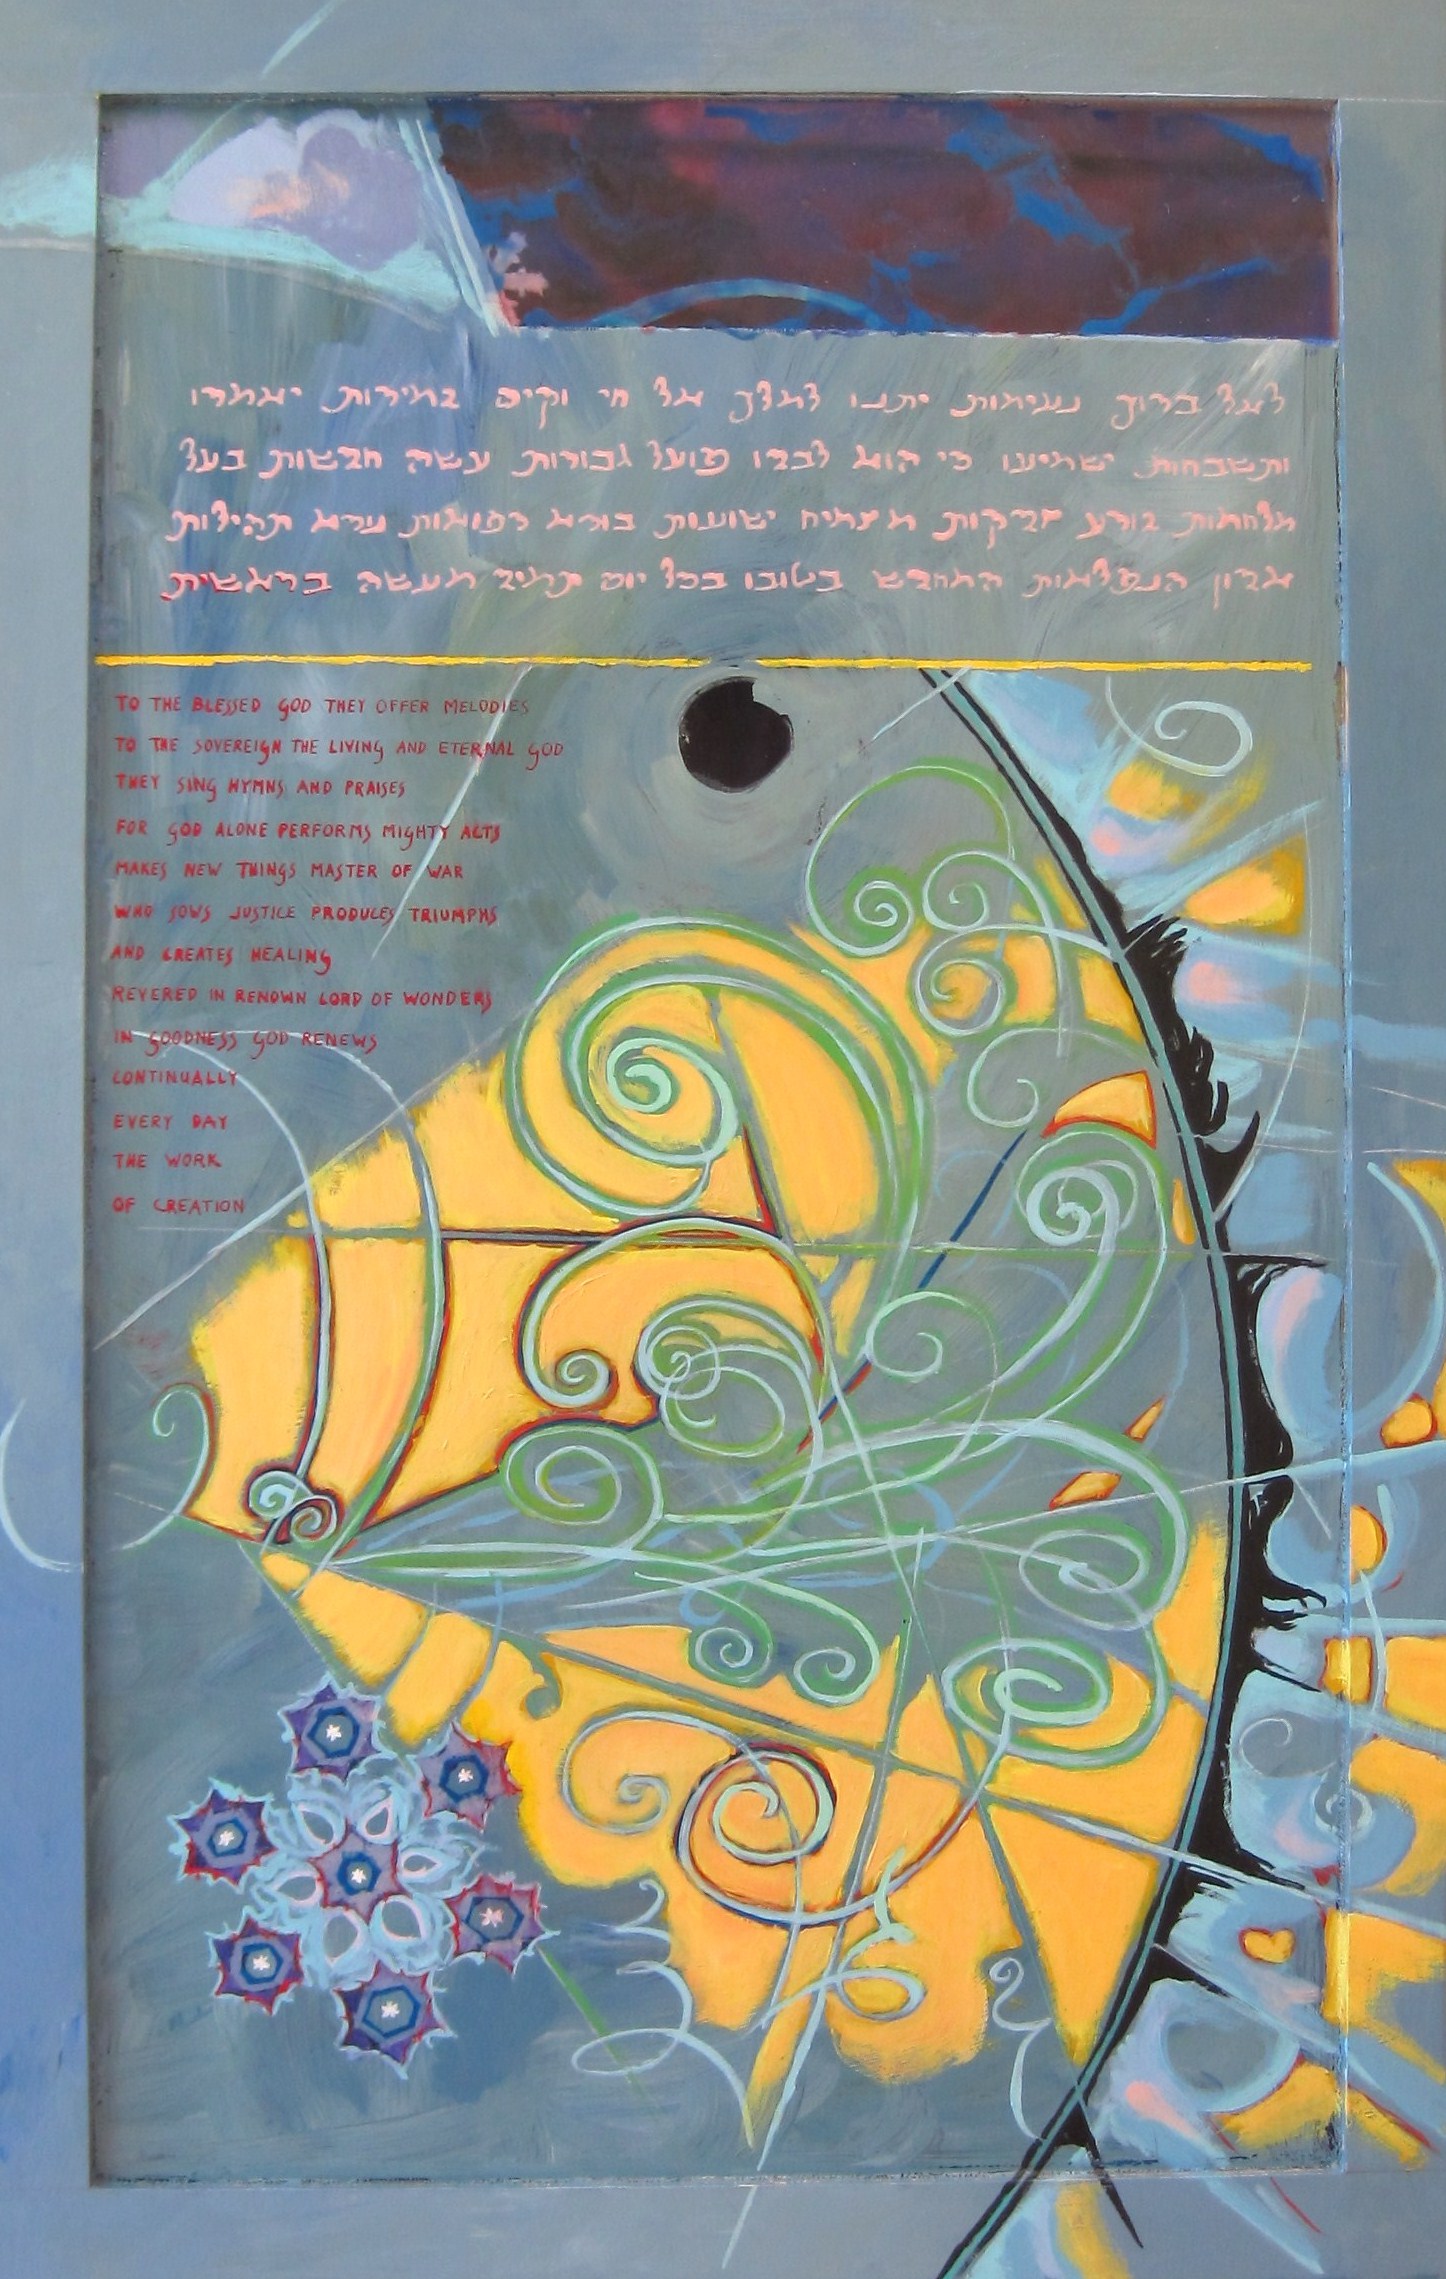 לאל ברוך נעימות יתנו למלך אל חי וקים זמירות יאמרו
ותשבחות ישמיעו כי הוא לבדו פועל גבורות עשה חדשות בעל
מלחמות זורע צדקות מצמיח ישועות בורא רפואות נורא תהילות
אדון הנפלאות המחדש בטובו בכל יום תמיד מעשה בראשית
TO THE BLESSED GOD THEY OFFER MELODIES
TO THE SOVEREIGN THE LIVING AND ETERNAL GOD
THEY SING HYMNS AND PRAISES
FOR GOD ALONE PERFORMS MIGHTY ACTS
MAKES NEW THINGS MASTER OF WAR
WHO SOWS JUSTICE PRODUCES TRIUMPHS
AND CREATES HEALING
REVERED IN RENOWN LORD OF WONDERS
IN GOODNESS GOD RENEWS
CONTINUALLY
EVERY DAY
THE WORK
OF CREATION